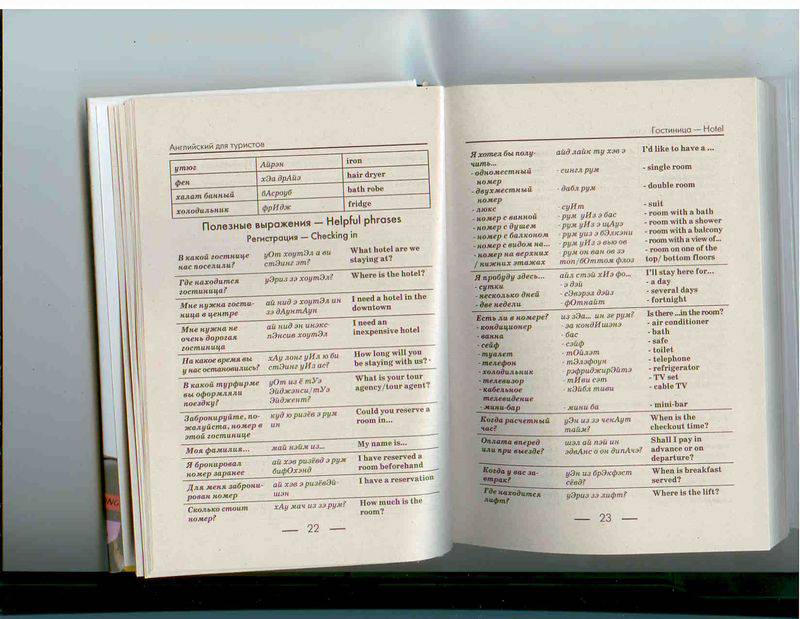 Английский для туристов
утюг Айрэн iron
фен хЭа дрАйэ hair dryer
халат банный бАсроуб bath robe
холодильник фрИдж fridge
Полезные выражения — Helpful phrases
Регистрация — Checking in
В какой гостнице уОт хоутЭл а ви What hotel are we
нас поселили? стЭинг эт? staying at?
Где находится уЭриз зэ хоутЭл? Where is the hotel?
гостиница?
Мне нужна гости- ай нид э хоутЭл ин I need a hotel in the
ница в центре зэ дАунтАун downtown
Мне нужна не ай нид эн инэкс- I need an
очень дорогая пЭнсив хоутЭл inexpensive hotel
гостиница
На какое время вы хАу лонг уИл ю би How long will you
у нас остановились? стЭинг уИз ас? be staying with us?
В какой турфирме уОт из ё тУэ What is your tour
вы оформляли Эйджэнси/тУэ agency/tour agent?
поездку? Эйджент?
Забронируйте, по- куд ю ризёв э рум Could you reserve a
жалуйста, номер в ин room in...
этой гостинице
Моя фамилия... май нэйм из... My name is...
Я бронировал ай хэв ризёвд э рум I have reserved a
номер заранее бифОхэнд room beforehand
Для меня заброни- ай хэв э ризёвЭй- I have a reservation
рован номер шэн
Сколько стоит хАу мач из зэ рум? How much is the
номер? room?
— 22 —
Гостиница — Hotel
Я хотел бы полу- айд лайк ту хэв э I'd like to have a ...
чить...
- одноместный - сингл рум - single room
номер
- двухместный - дабл рум - double room
номер
- люкс - суИт - suit
- номер с ванной - рум уИз э бас - room with a bath
- номер с душем - рум уИз э щАуэ - room with a shower
- номер с балконом - рум уиз э бЭлкэни - room with a balcony
- номер с видом на... - рум уИз э вью ов - room with a view of...
- номер на верхних - рум он ван ов зэ - room on one of the
/ нижних этажах топ/бОттом флоз top/ bottom floors
Я пробуду здесь... айл стэй хИэ фо... I'll stay here for...
- сутки - э дэй - a day
- несколько дней - сЭвэрэл дэйз - several days
- две недели - фОтнайт - fortnight
Есть ли в номере? из зЭа... ин зе рум? Is there...in the room?
- кондиционер - эа кондИшэнэ - air conditioner
- ванна - бас - bath
- сейф - сэйф - safe
- туалет - тОйлэт - toilet
- телефон - тЭлэфоун - telephone
- холодильник - рэфриджирЭйтэ - refrigerator
- телевизор - тИви сэт - TV set
- кабельное - кЭйбл тиви - cable TV
телевидение
- мини-бар - мини ба - mini-bar
Когда расчетный уЭн из зэ чекАут When is the
час? тайм? checkout time?
Оплата вперед шэл ай пэй ин Shall I pay in
или при выезде? эдвАнс о он дипАчэ? advance or on
departure?
Когда у вас за- уЭн из брЭкфэст When is breakfast
втрак? сёвд? served?
Где находится уЭриз зэ лифт? Where is the lift?
лифт?
— 23 —